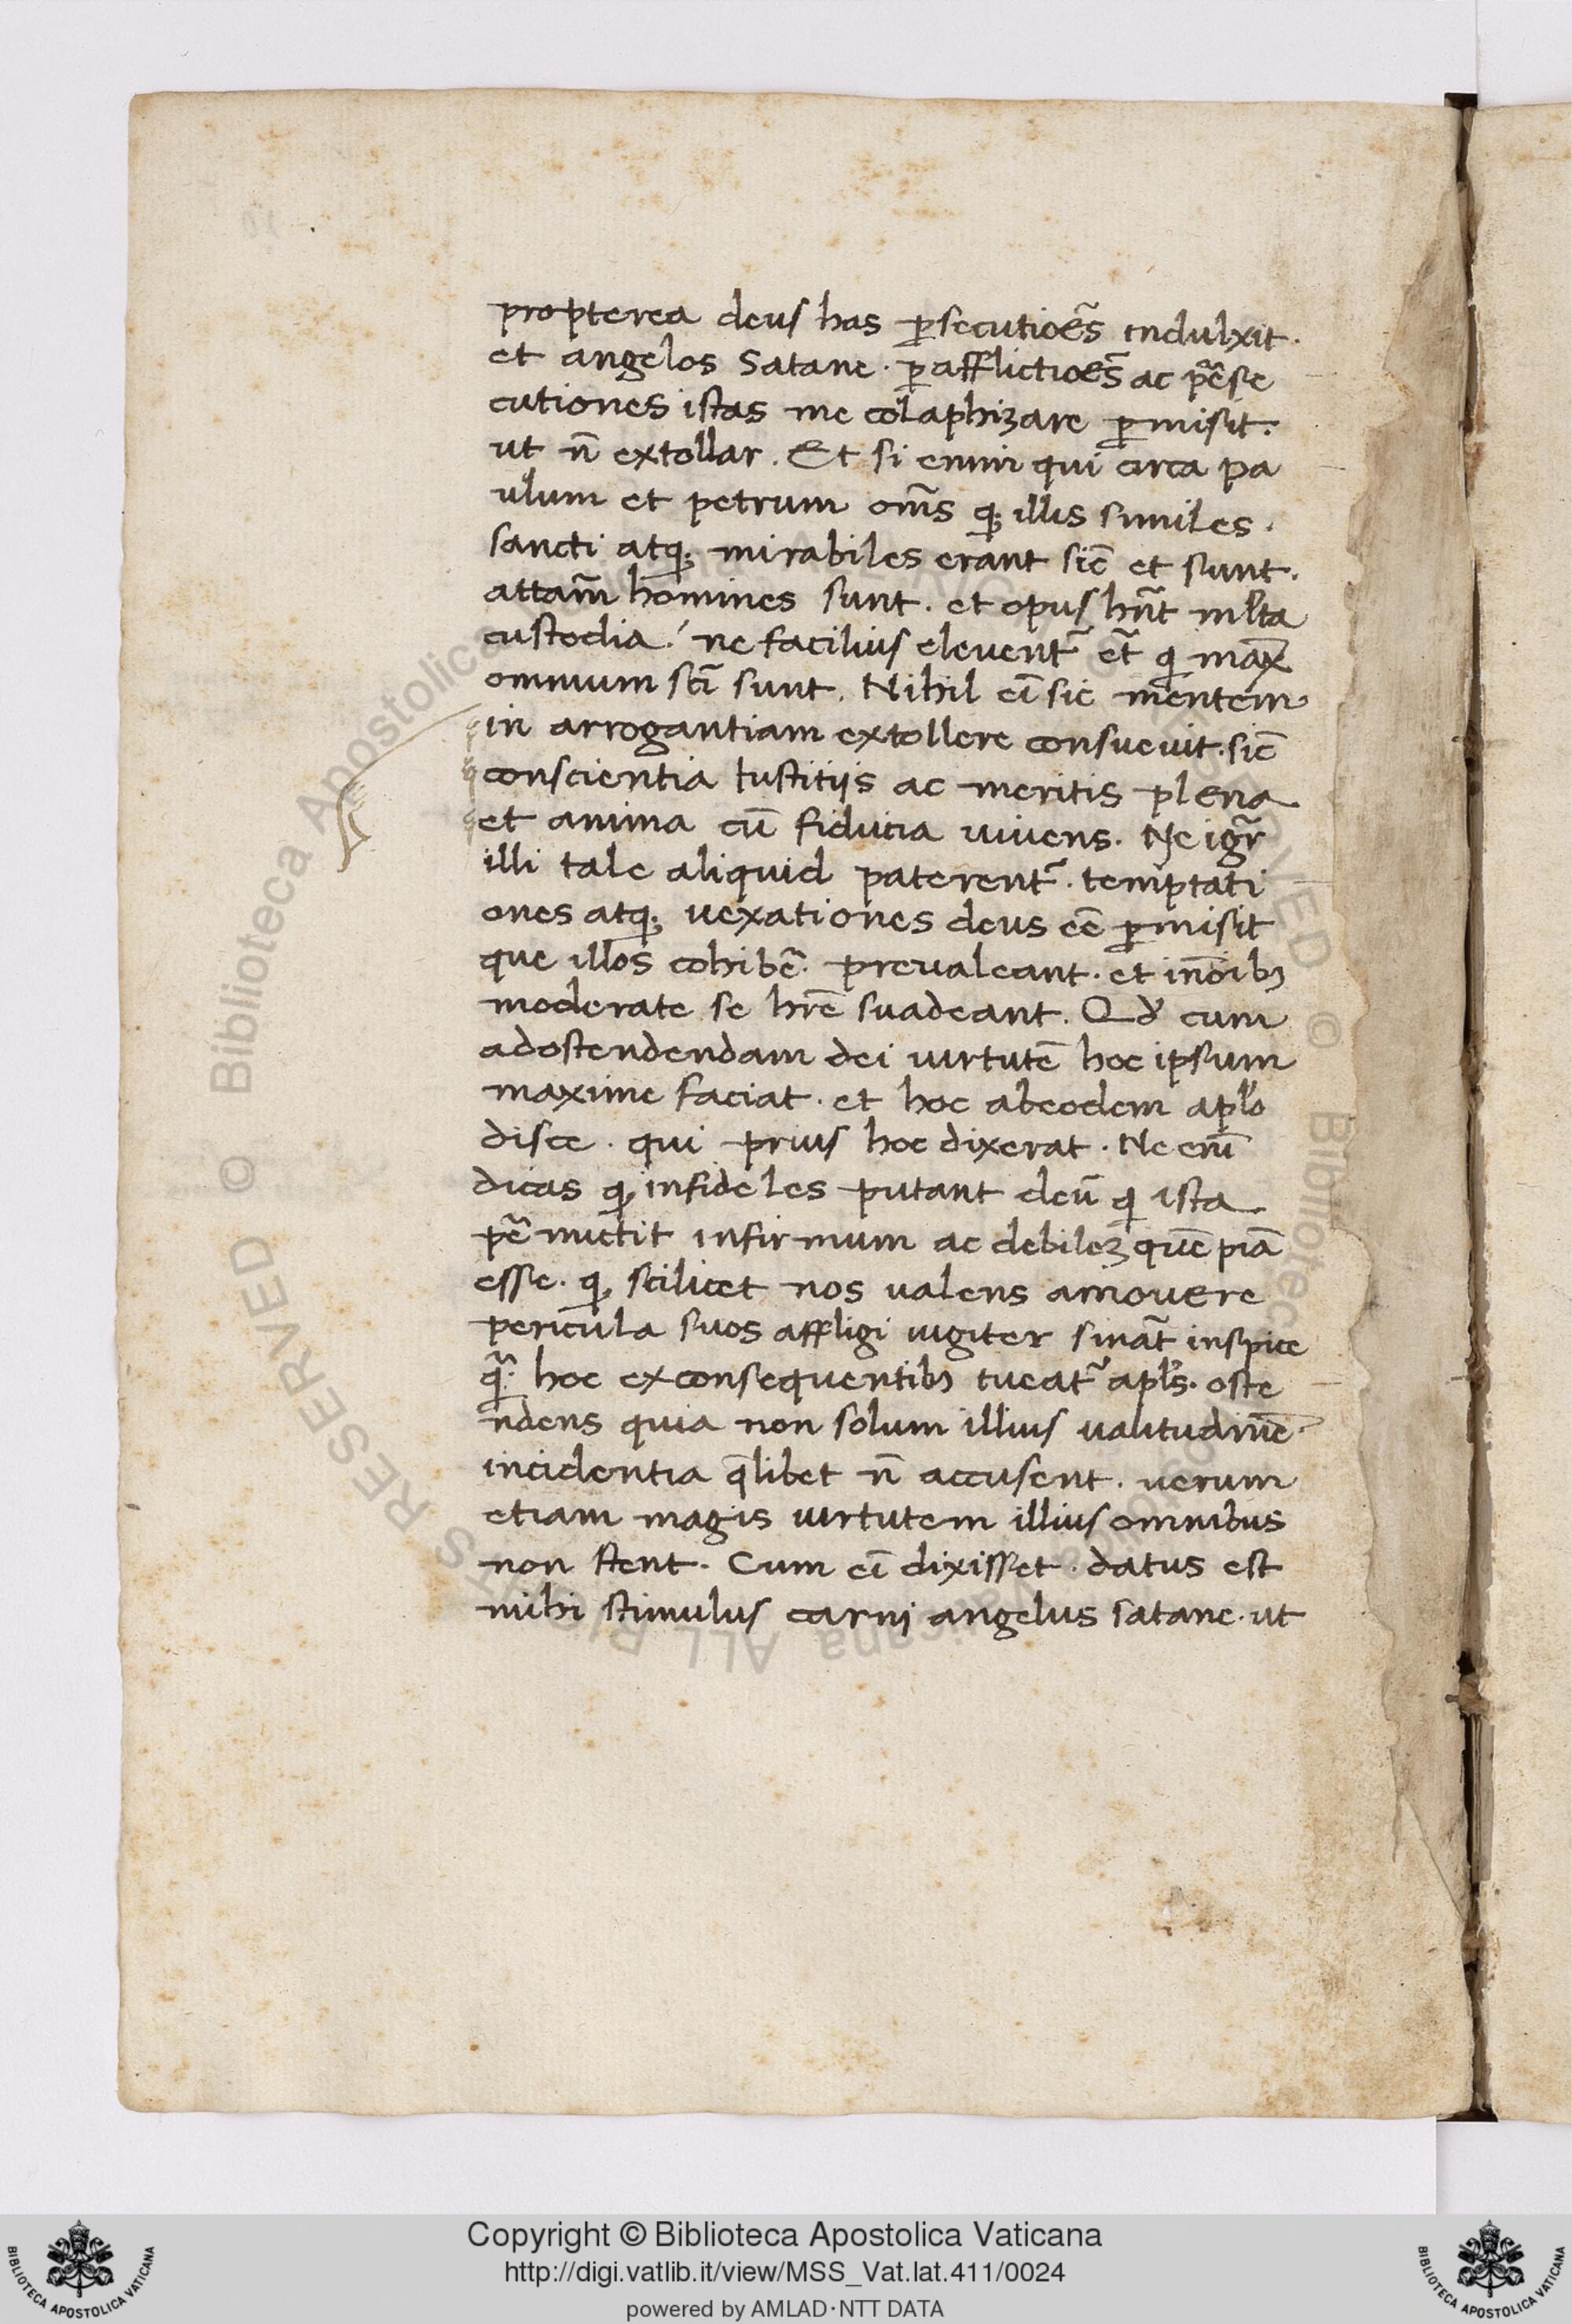 propterea deus has ꝑsecutiões indulxit.
et angelos Satane. ꝑ afflictioẽs ac pẽrse
cutiones istas me colaphizare ꝑmisit.
ut nõ extollar. Et si enim qui circa pa
ulum et petrum om̃s qꝫ illis similes.
sancti atqꝫ mirabiles erant sic̃ et sunt.
attam̃ homines sunt. et opus hñt ml̃ta
custodia. ne facilius eleventr̃ et̃ qi max̃
omnium sc̃i sunt. Nihil ei̅ sic mentem
in arrogantiam extollere consuevit. sic̃
conscientia iustitijs ac meritis plena
et anima cũ fiducia vivens. Ne igr̃
illi tale aliquid paterentr̃. temptati
ones atqꝫ vexationes deus eẽ ꝑmisit
que illos cohibẽ. prevaleant. et in oĩbꝫ
moderate se hr̃e suadeant. Qd̃ cum
ad ostendendam dei virtutẽ hoc ipsum
maxime faciat. et hoc ab eodem apl̃o
disce. qui prius hoc dixerat. Ne eni̅
dicas qꝫ infideles putant deũ qi ista
pẽrmictit infirmum ac debilẽ quẽpiã
esse. qꝫ scilicet nos valens amovere
pericula suos affligi iugiter sinat̃ inspice
qr̃. hoc ex consequentibꝫ tueatr̃ apl̃s. oste
ndens quia non solum illius valitudinẽ
incidentia q̃libet nõ accusent. verum
etiam magis virtutem illius omnibus
non stent. Cum ei̅ dixisset. datus est
mihi stimulus carnj angelus satane. ut
Copyright © Biblioteca Apostolica Vaticana
http://digi.vatlib.it/view/MSS_Vat.lat.411/0024
powered by AMLAD·NTT DATA